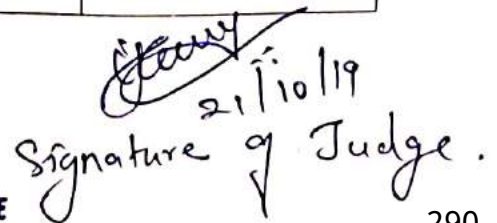 21/10/19
Signature of Judge.
290